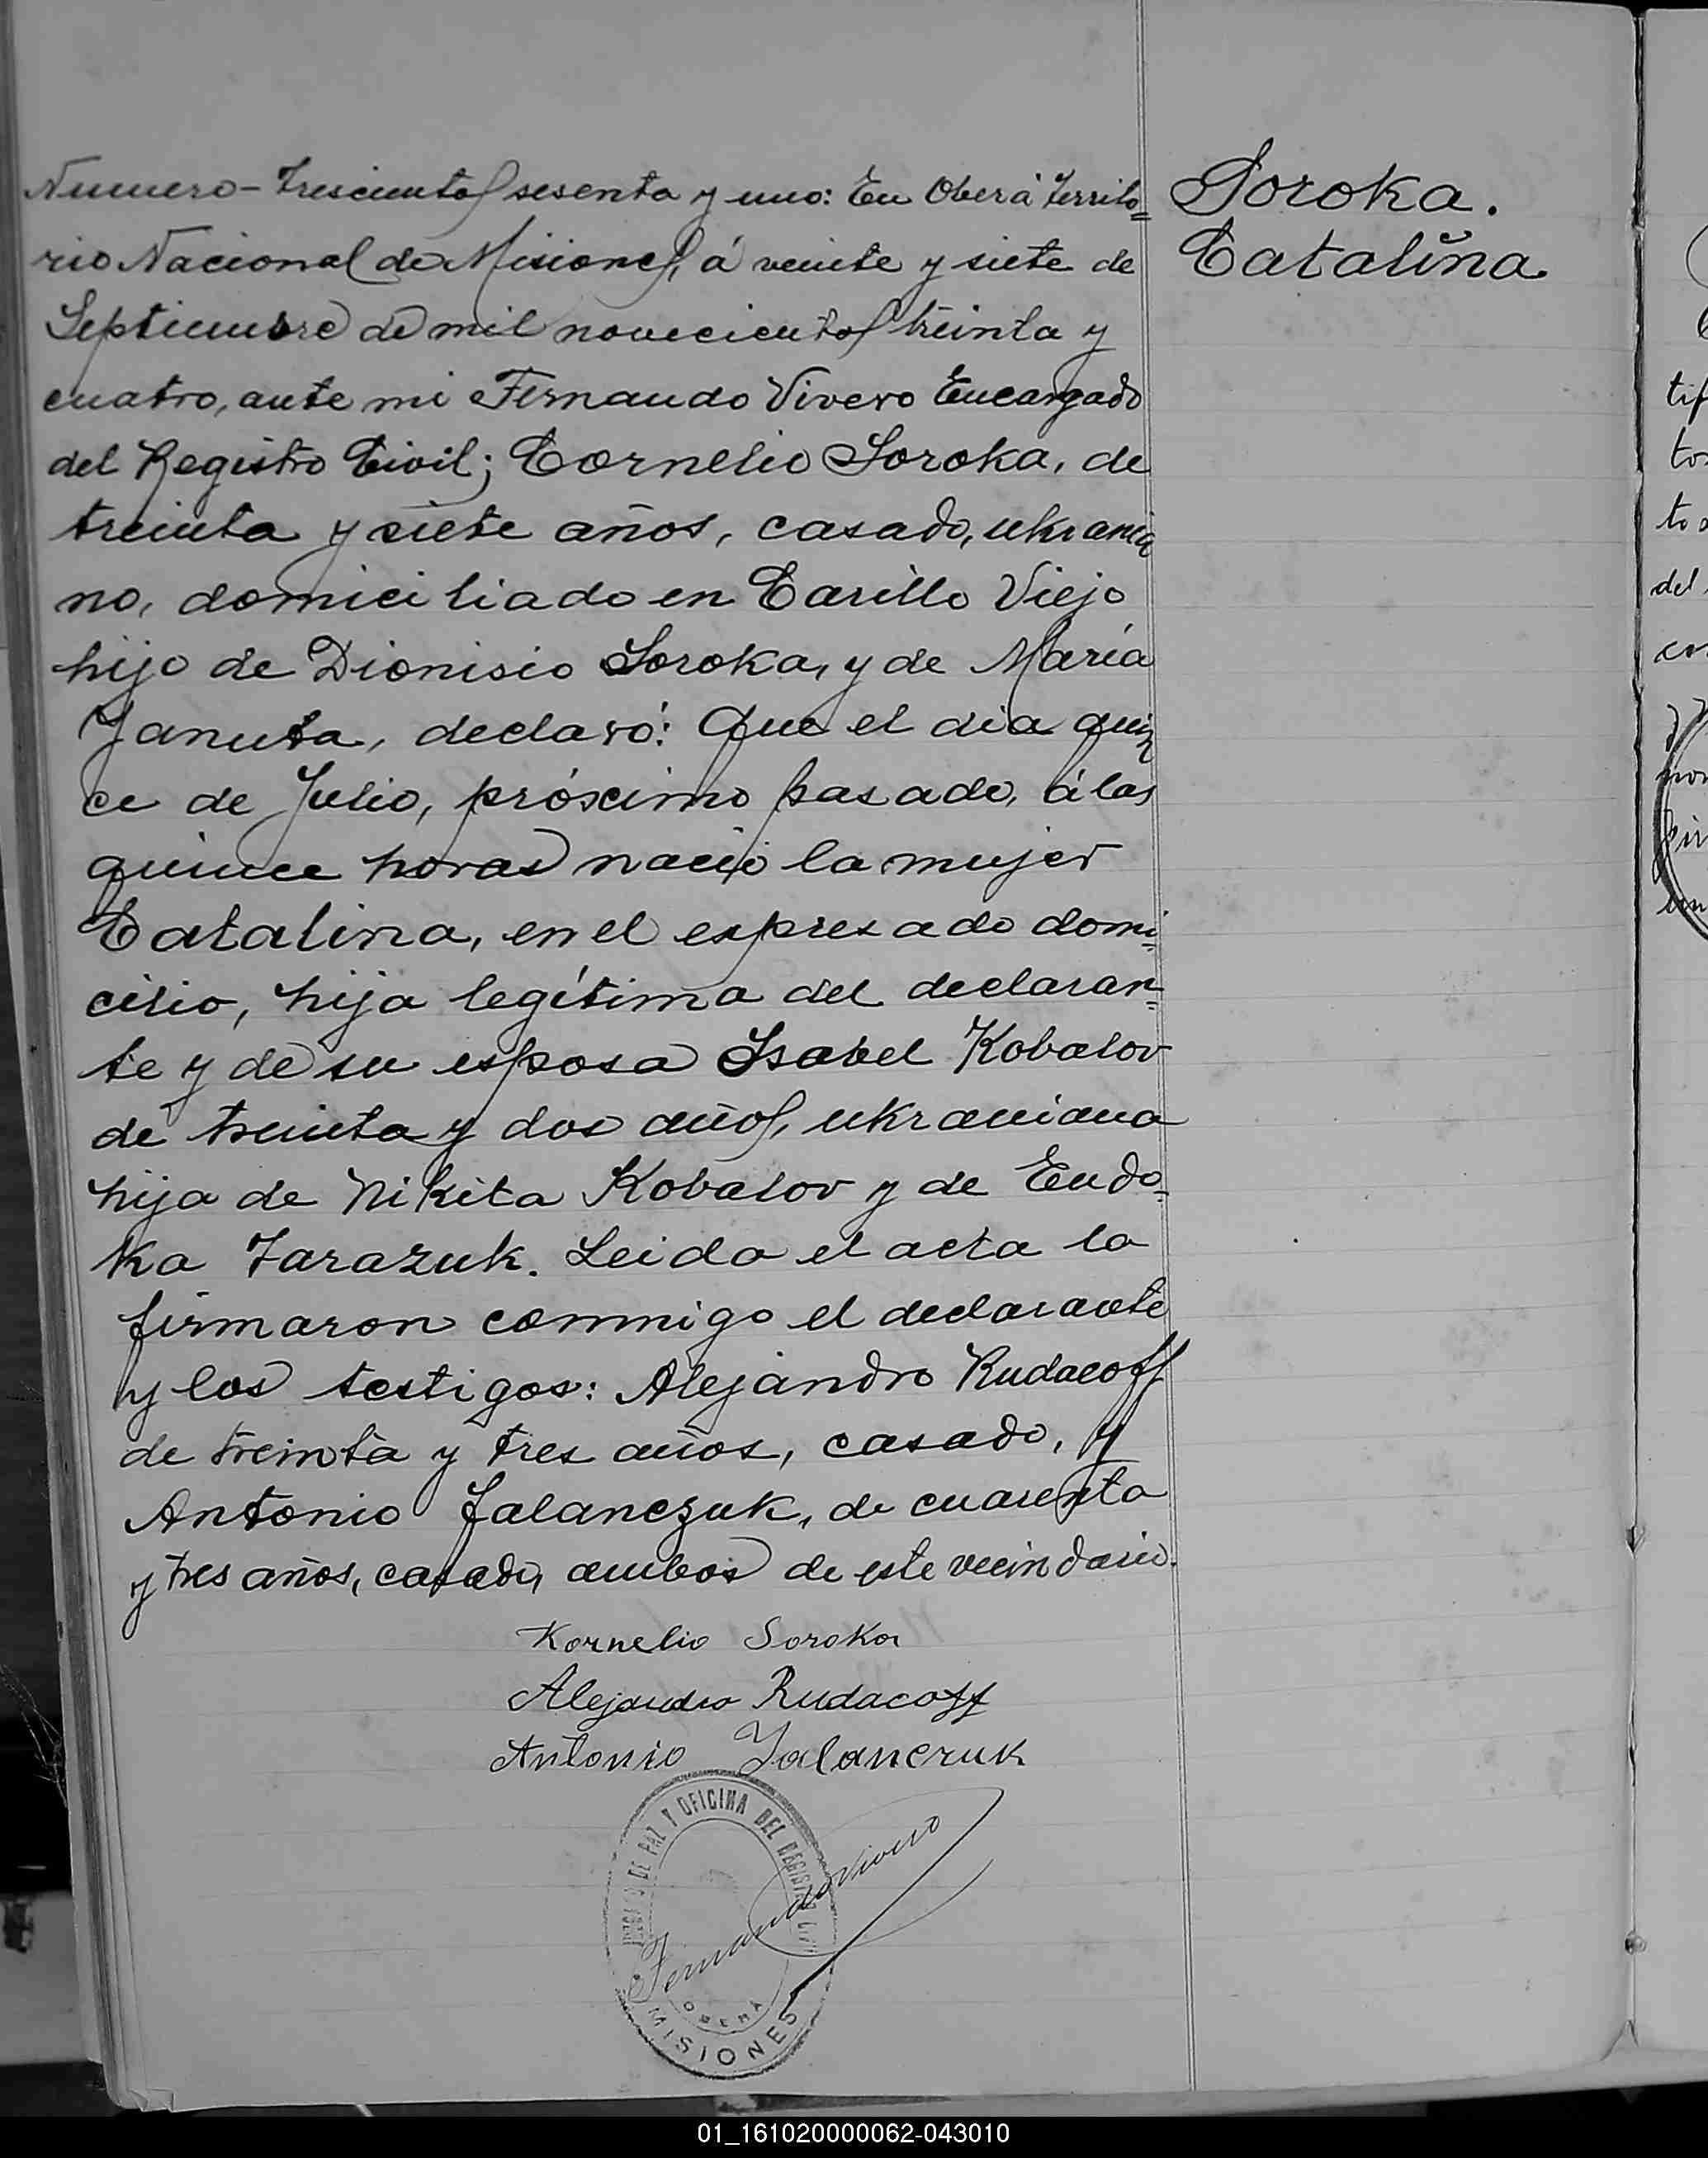 Numero - Trescientos sesenta y uno: En Oberá Territo=
rio Nacional de Misiones, á veinte y siete de
Septiembre de mil novecientos treinta y
cuatro, ante mi Fernando Vivero Encargado
del Registro Civil; Cornelio Soroka, de
treinta y siete años, casado, ukrania
no, domiciliado en Carillo Viejo
hijo de Dionisio Soroka, y de María
Januta, declaró: Que el dia quin
ce de Julio, próximo pasado, á las
quince horas nació la mujer
Catalina, en el expresado domi=
cilio, hija legítima del declaran=
te y de su esposa Isabel Kobalov
de treinta y dos años, ukraniana
hija de Nikita Kobalov y de Eudo=
ka Tarazuk. Leida el acta la
firmaron conmigo el declarante
y los testigos: Alejandro Rudacoff
de treinta y tres años, casado, y
Antonio Jalanczuk, de cuarenta
y tres años, casado, ambos de este vecindario.
Kornelio Soroka
Alejandro Rudacoff
Antonio Jalanczuk
Fernando Vivero
JUZGADO DE PAZ Y OFICINA DEL REGISTRO CIVIL
OBERÁ
MISIONES
Soroka.
Catalina.
01_161020000062-043010